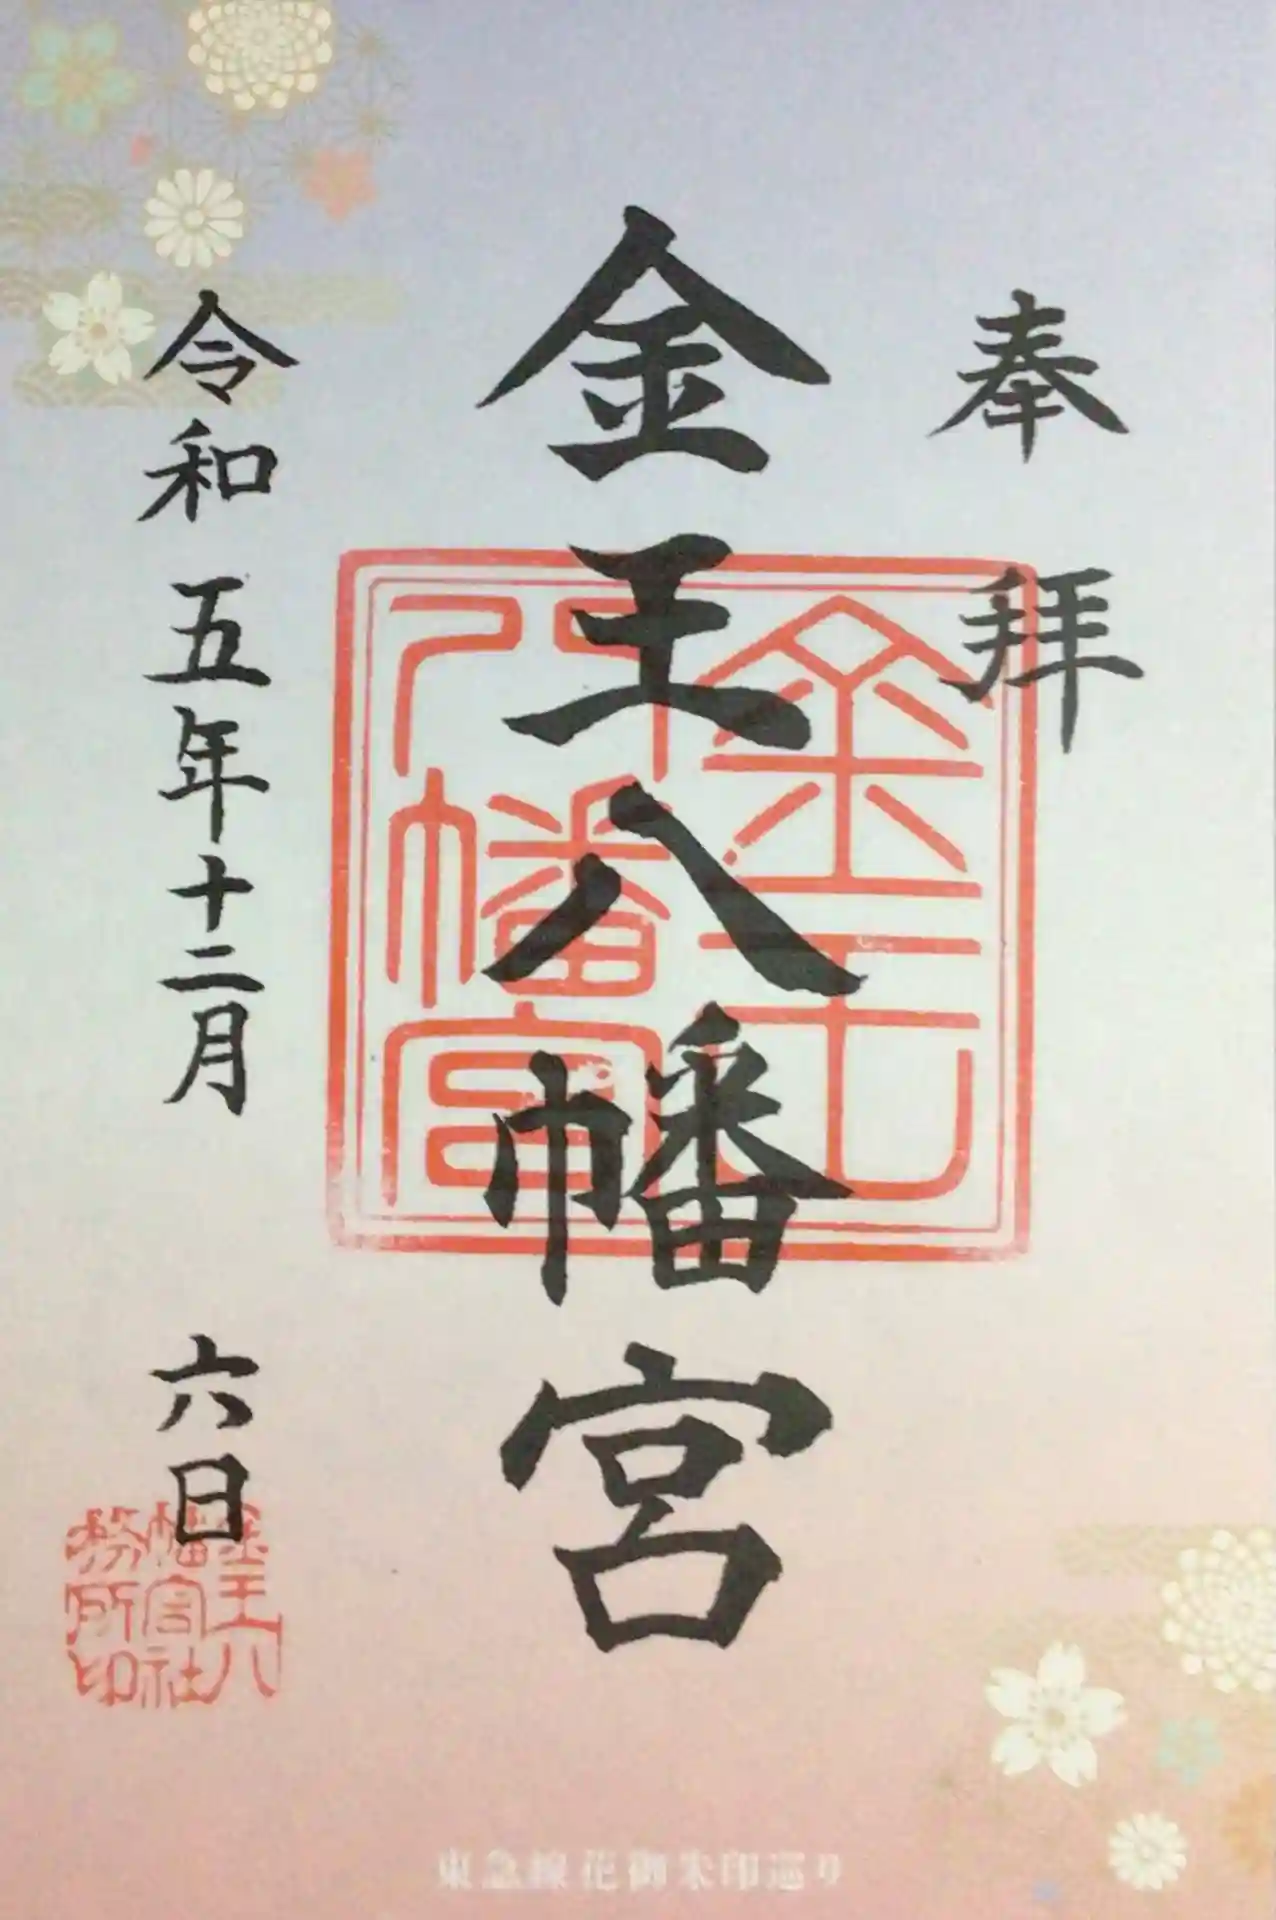 奉拝
金王八幡宮
金王八幡宮
令和五年十二月六日
金王八幡宮社務所印
東急線花御朱印巡り